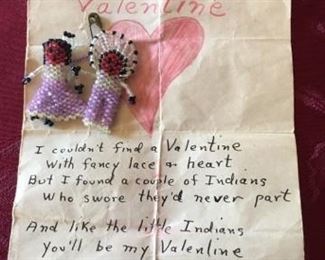 Valentine
I couldn't find a Valentine
With fancy lace or heart
But I found a couple of Indians
Who swore they'd never part
And like the little Indians
You'll be my Valentine